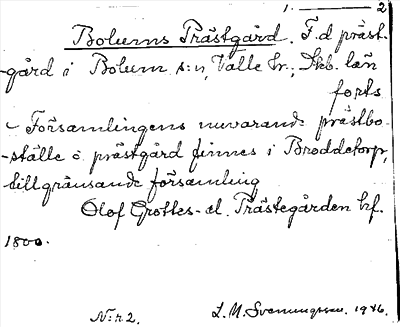 1. — 2
Bolums Prästgård. F.d präst-
-gård i Bolum s:n, Valle hr., Skb. län
forts
- Församlingens nuvarande prästbo-
-ställe o. prästgård finnes i Broddetorp,
tillgränsande församling
Olof Grottes- el. Prästegården kf.
1800.
N:r 2. L. M. Svenungsson. 1946.